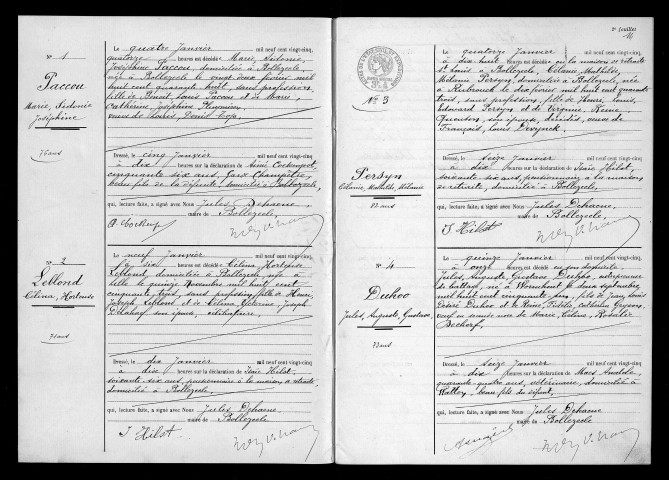 N° 1
Paccou
Marie, Sidonie
Joséphine
76 ans
Le quatre Janvier mil neuf cent vingt-cinq,
quatorze heures est décédée Marie, Sidonie,
Joséphine Paccou domiciliée à Bollezeele
née à Bollezeele le vingt deux février mil
huit cent quarante huit, sans profession,
fille de Benoit, Louis Paccou et de Marie,
Catherine, Joséphine
veuve de Charles, David
Dressé, le cinq Janvier mil neuf cent vingt-cinq
à dix heures sur la déclaration de Aimé
cinquante six ans, Garde Champêtre,
beau fils de la défunte, domicilié à Bollezeele,
qui, lecture faite, a signé avec Nous Jules Dehaene,
maire de Bollezeele,
N° 2
Leblond
Célina, Hortense
71 ans
Le neuf Janvier mil neuf cent vingt-cinq,
à six heures est décédée Célina, Hortense
Leblond, domiciliée à Bollezeele née à
le quinze Novembre mil huit cent
cinquante trois, sans profession, fille de Henri,
Joseph Leblond et de Célina, Joseph
son épouse, célibataire.
Dressé, le dix Janvier mil neuf cent vingt-cinq
à dix heures sur la déclaration de Isaïe Hilst,
soixante six ans, pensionnaire à la maison de retraite
domicilié à Bollezeele,
qui, lecture faite, a signé avec Nous Jules Dehaene
maire de Bollezeele
I Hilst
2e feuillet
N° 3
Persyn
Célanie, Mathilde, Mélanie
Le quatorze Janvier mil neuf cent vingt-cinq,
à dix huit heures est décédée en la maison de retraite
St Louis à Bollezeele, Célanie, Mathilde,
Mélanie Persyn, domiciliée à Bollezeele, née
à le dix février mil huit cent quarante
trois, sans profession, fille de Henri, Louis,
Edouard Persyn et de Virginie, Reine
son épouse, décédés, veuve de
François, Louis
Dressé, le seize Janvier mil neuf cent vingt-cinq
à dix heures sur la déclaration de Isaïe Hilst,
soixante six ans, pensionnaire à la maison
de retraite, domicilié à Bollezeele,
qui, lecture faite, a signé avec Nous Jules Dehaene,
maire de Bollezeele,
I Hilst
N° 4
Duhoo
Jules, Auguste, Gustave,
73 ans
Le quinze Janvier mil neuf cent vingt-cinq,
à onze heures est décédé en son domicile
Jules, Auguste, Gustave Duhoo, entrepreneur
de battage, né à Wormhout le deux septembre
mil huit cent cinquante un, fils de Jean, Louis
Désiré Duhoo et de Reine, Fidélie, Catherine
veuf en secondes noces de Marie, Céline, Rosalie
Dressé, le seize Janvier mil neuf cent vingt-cinq
à dix heures sur la déclaration de Maes Amédée
quarante quatre ans, vétérinaire, domicilié à
Watten, beau fils du défunt,
qui, lecture faite, a signé avec Nous Jules Dehaene
maire de Bollezeele